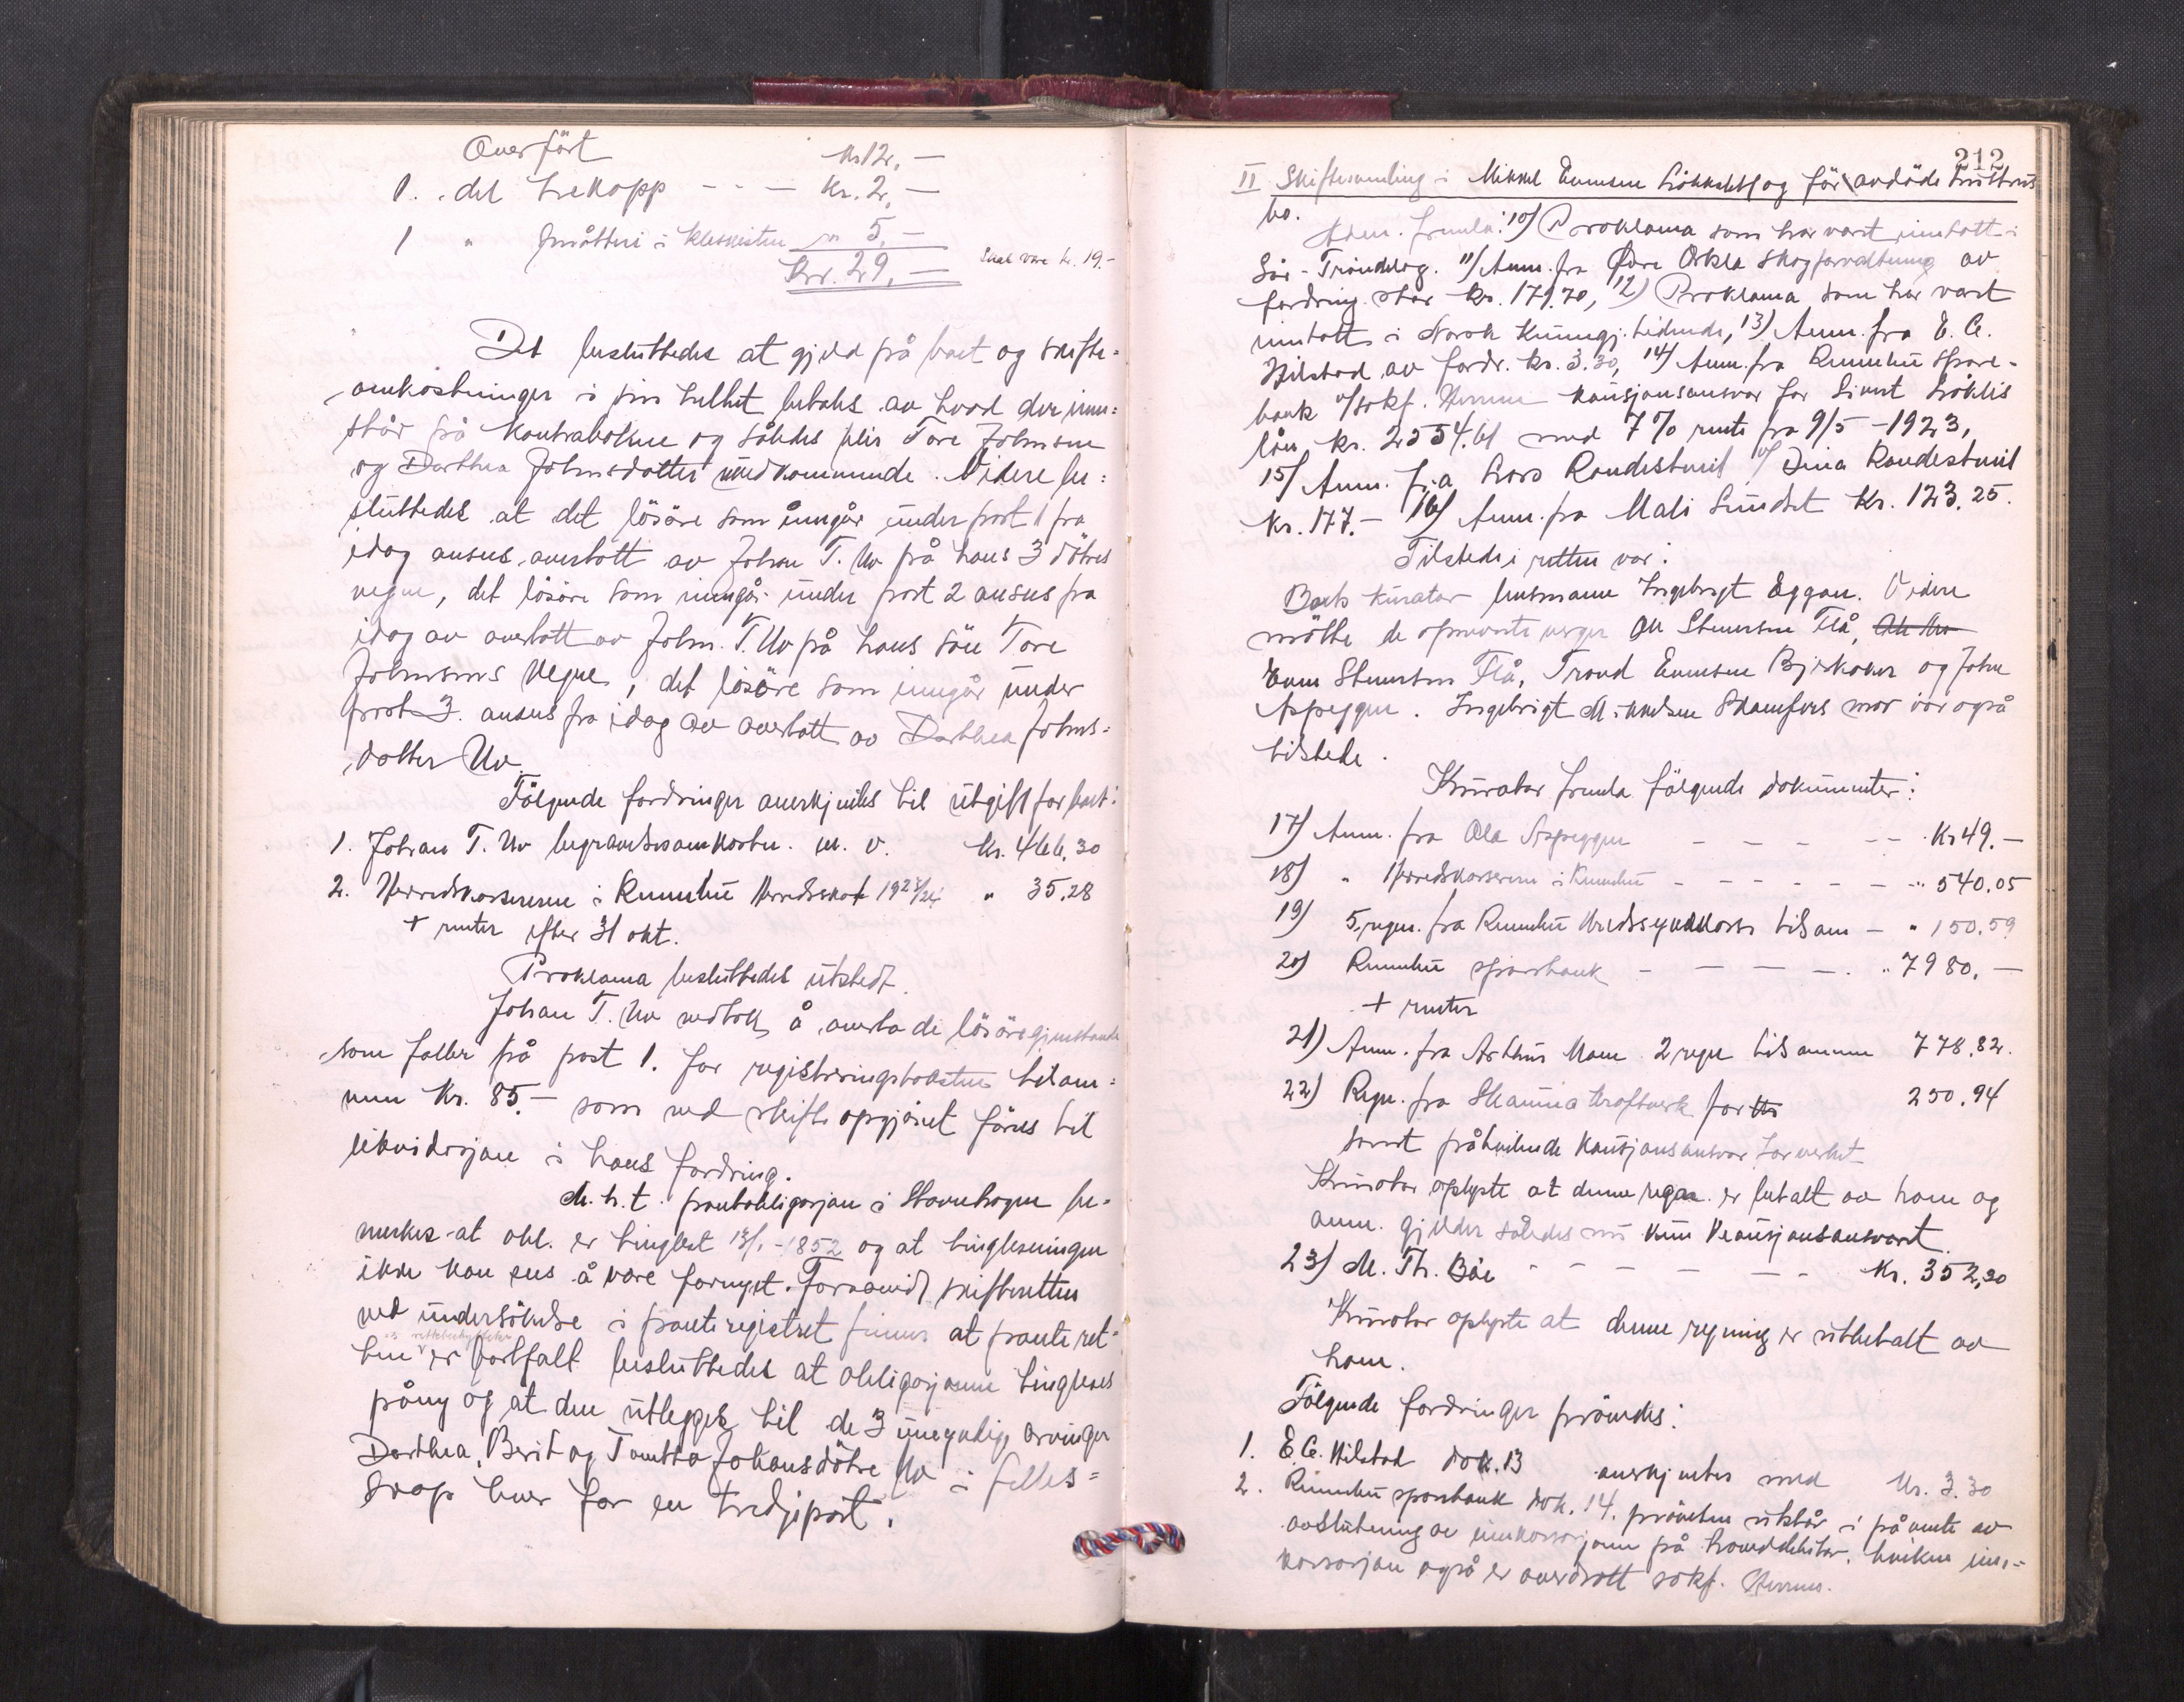 Overført kr 12,—
1. . del trekopp - - — kr. 2,—
1 " småtteri i kleskisten " 5,—
Kr. 29,— Skal være kr. 19.-
Det besluttedes at gjeld på boet og skifte=
omkostninger i sin helhet betales av hvad der inne=
står på Kontrabokene og således blir Tore Johnsen
og Dorthea Johnsdotter vedkommende. Videre be=
sluttedes at det løsøre som inngår under post 1 fra
idag ansees overtatt av Johan T. Uv på hans 3 døtres
vegne, det løsøre som inngår under post 2 ansees fra
idag av overtatt av Johan T. Uv på hans søn Tore
Johnsens vegne, det løsøre som inngår under
post 3. ansees fra idag av overtatt av Dorthea Johns=
dotter Uv.
Følgende fordringer anerkjentes til utgift for boet:
1. Johan T. Uv begravelsesomkostn. m. v. kr. 466,30
2. Herredskassereren i Rennebu Herredsskat 1923/24 " 35,28
+ renter efter 31 okt.
Proklama besluttedes utstedt.
Johan T. Uv vedtok å overta de løsøregjenstande
som faller på post 1. for registreringstaksten tilsam=
men kr. 85,— som ved skifteopgjøret føres til
likvidasjon i hans fordring.
M. h. t. pantobligasjon i Stavnehogen be=
merkes at obl. er tinglest 13/1-1852 og at tinglesningen
ikke kan sees å være fornyet. Forsåvidt skifteretten
ved undersøkelse i panteregistret finner at pante ret=
ten er bortfalt besluttedes at obligasjonen tingleses
påny og at den utlegges til de 3 umyndige arvinger
Dorthea, Berit og Tomtta Johansdøtre Uv i felles=
skap hver for en tredjepart.
212
II Skiftesamling i Mikkel Evensen Løkkslett og før avdøde hustrus
bo.
Adm. fremla: 10) Proklama som har vært inntatt i
Sør-Trøndelag. 11) Anm. fra Øvre Orkla Skogforvaltning av
fordring stor kr. 179.70, 12) Proklama som har vært
inntatt i Norsk Kunngj. tidende, 13) Anm. fra E. C.
Hilstad av fordr. kr. 3.30, 14) Anm. fra Rennebu Spare-
bank v/sakf. kausjonsansvar for Sivert Løklis
lån kr. 2554.61 med 7% rente fra 9/5-1923,
15) Anm. fra Lars Rondestveit v/ Dina Rondestveit
kr. 177.— 16) Anm. fra Mali Sundset kr. 123,25.
Tilstede i retten var:
Boets kurator lensmann Ingebrigt Eggan. Videre
møtte de opnevnte verger Ole Steenersen Flå,
Even Steenersen Flå, Trond Evensen Bjerkaker og John
Aspeggen. Ingebrigt Mikkelsen Skamfers mor var også
tilstede.
Kurator fremla følgende dokumenter:
17) Anm. fra Ola Aspeggen — — — — — kr 49.—
18) " Herredskassereren i Rennebu - - - - - " 540.05
19) 5 regn. fra Rennebu tilsam — " 150.59
20) Rennebu sparebank - — — — — " 7980.—
+ renter
21) Anm. fra Arthur Moen 2 regn tilsammen 778.82.
22) Regn. fra Skauma kraftverk for 250.94
samt påhvilende kausjonsansvar for verket
Kurator oplyste at denne regn. er betalt av ham og
anm. gjelder således nu kun kausjonsansvaret.
23) M. Th. Bøe - - — — - - Kr. 352,20
Kurator oplyste at denne regning er utbetalt av
ham.
Følgende fordringer prøvedes:
1. E. C. Hilstad dok. 13 anerkjentes med kr. 3.30
2. Rennebu sparebank dok. 14. prøvelsen utstår i påvente av
avslutning av innkassasjonen på hoveddebitor, hvilken inn=
kassasjon også er overdratt sakf.